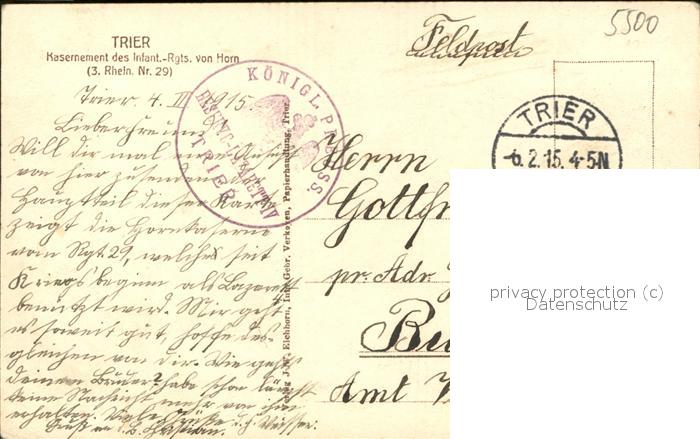 5500
Feldpost
TRIER
Kasernement des Infant.-Rgts. von Horn
(3. Rhein. Nr. 29)
KÖNIGL. PREUSS.
TRIER
TRIER
-6.2.15. 4-5N
Trier, 4. II. 1915.
Lieber Freund
Will dir mal eine Ansicht
von hier zusenden
Hauptteil dieser Karte
zeigt die Hornkaserne
vom Rgt. 29, welches seit
Kriegsbeginn als Lazarett
benutzt wird. Mir geht
es soweit gut, hoffe des-
gleichen von dir. Wie gehts
deinem Bruder? habe schon längst
keine Nachricht mehr von ihm
erhalten. Viele Grüße
Gruß
Herrn
Gottfr
pr. Adr.
Bu
Amt
Eichhorn, Inh. Gebr. Verkoyen, Papierhandlung, Trier.
privacy protection (c)
Datenschutz